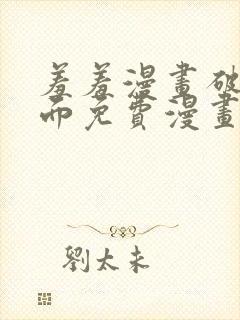 羞羞漫畫破
而免費漫畫
劉太未